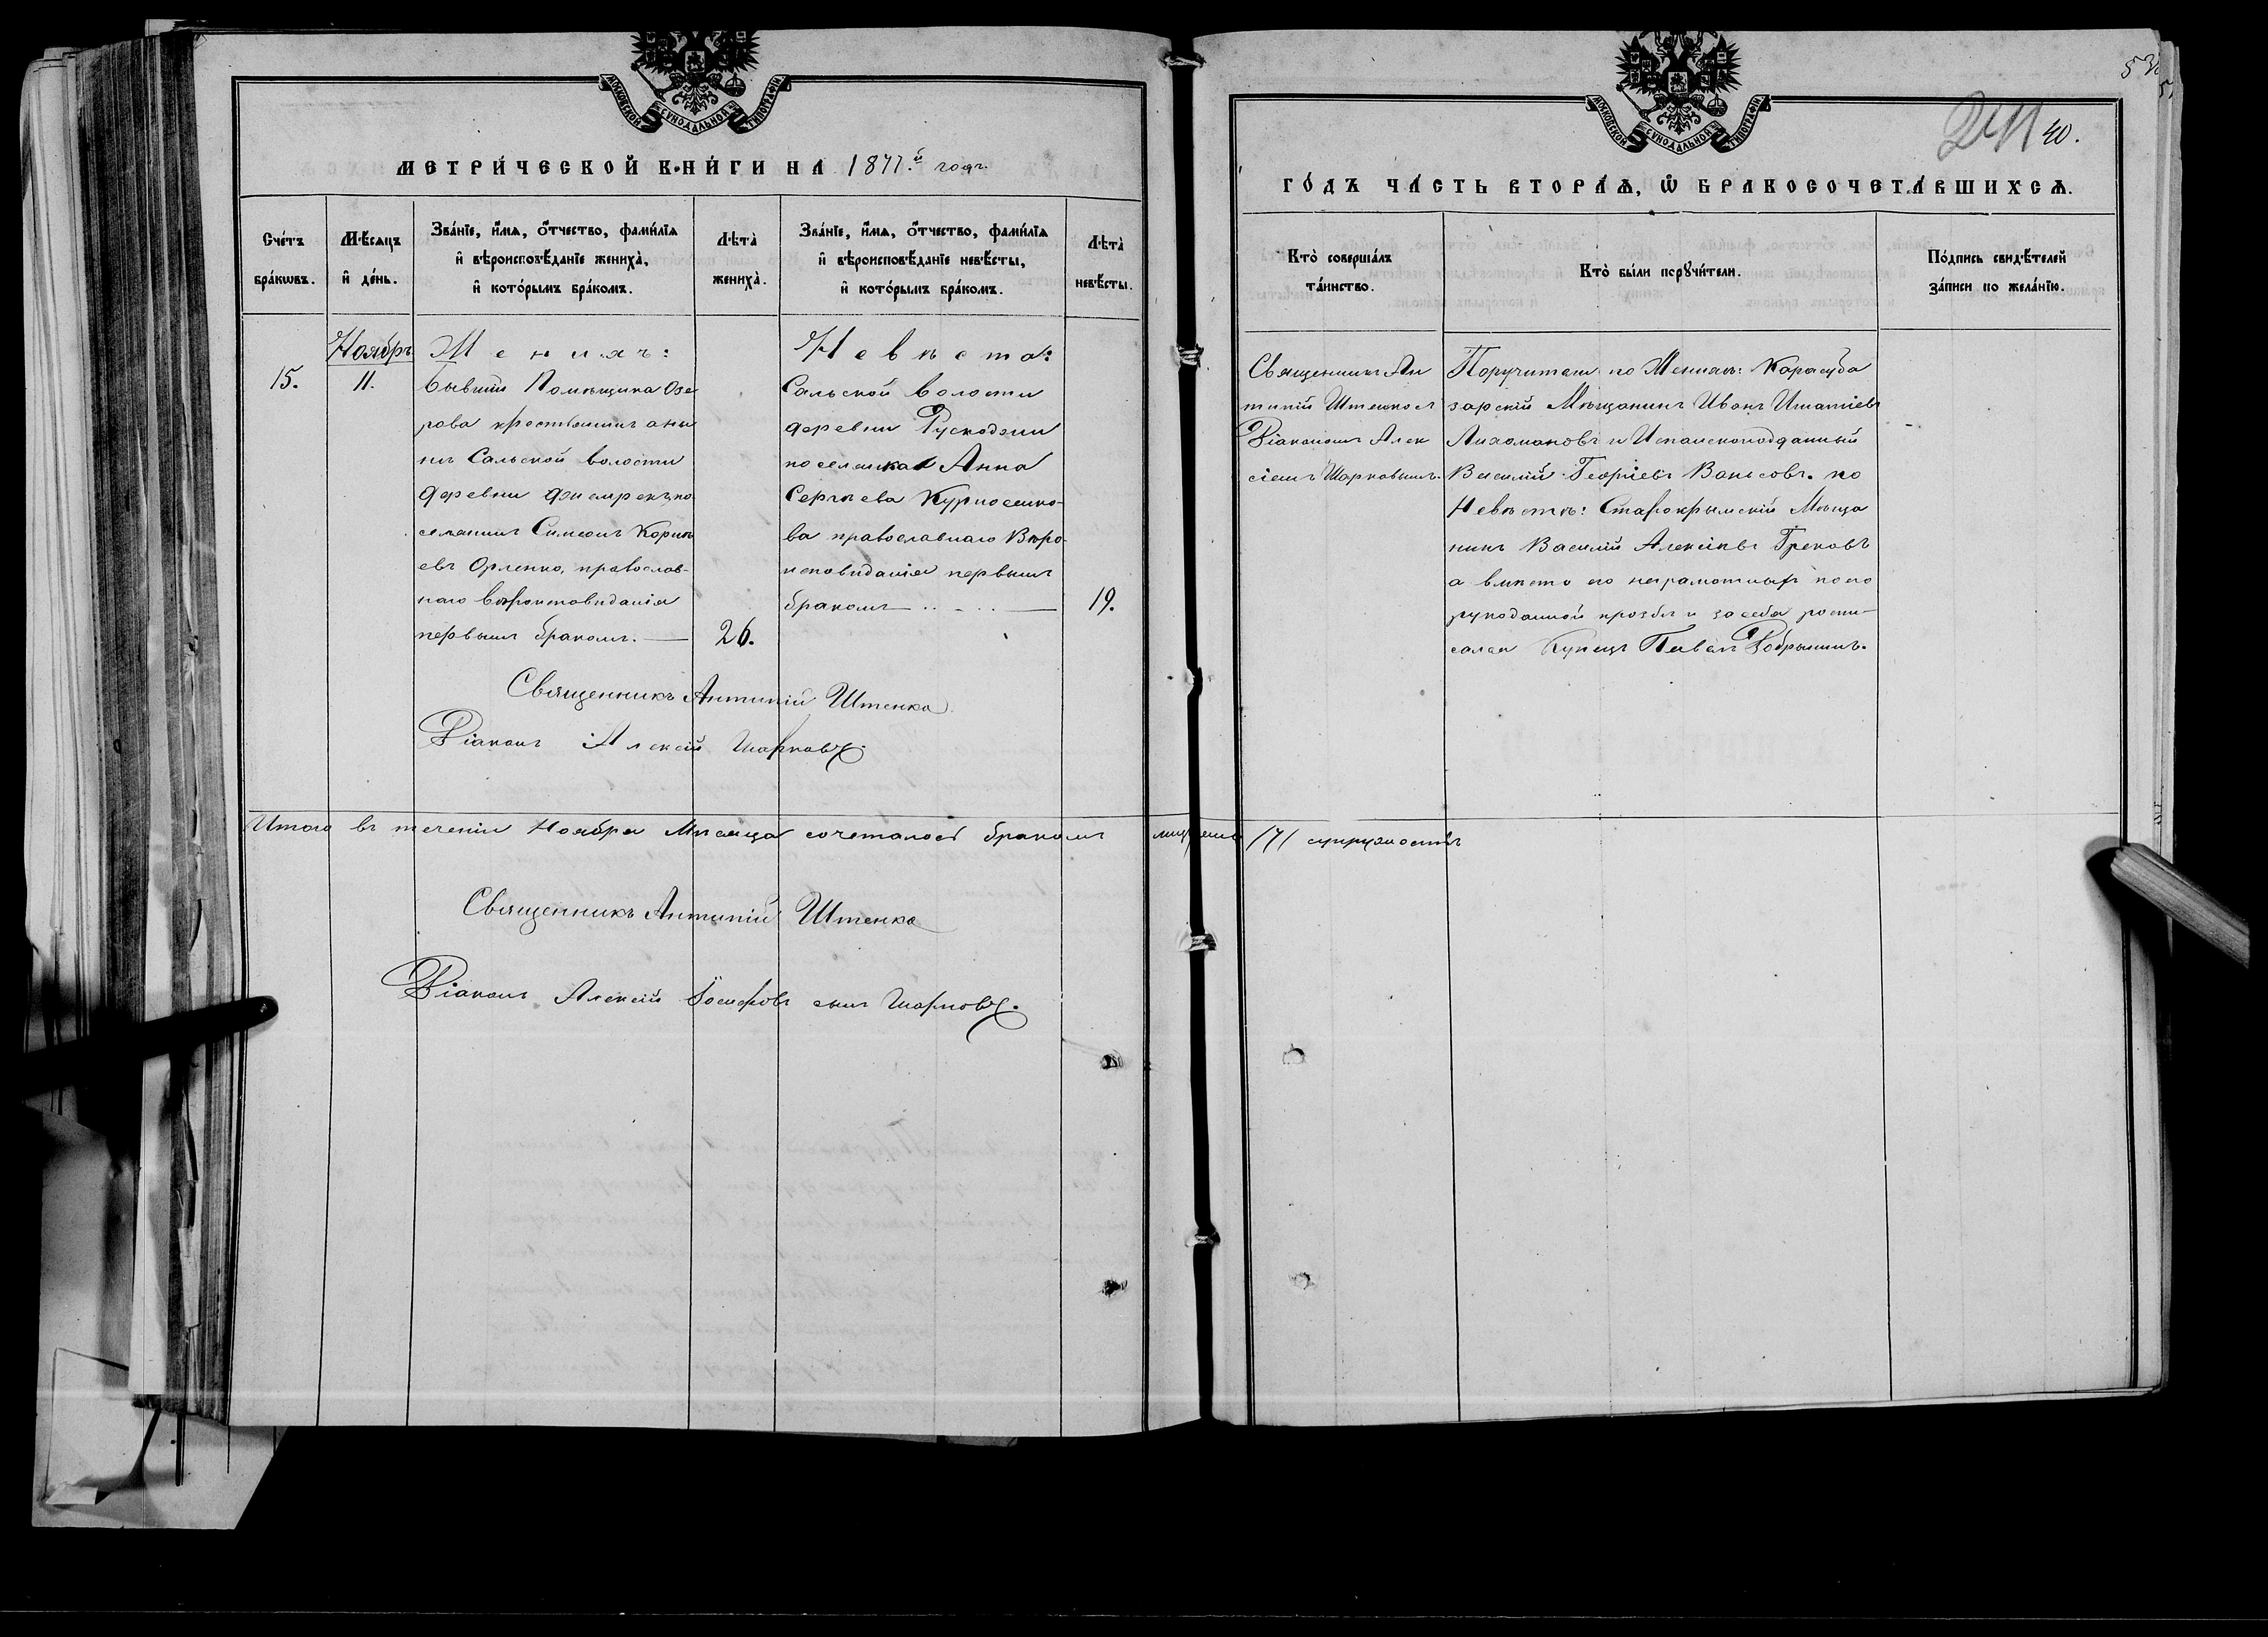 МОСКОВСКОЙ СУНОДАЛЬНОЙ ТИПОГРАФІИ
МЕТРИ́ЧЕСКОЙ КНИ́ГИ НА 1871.й годъ.
Сче́тъ бра́кѡвъ.
Мѣ́сяцъ и҆ де́нь.
Зва́нїе, и҆́мѧ, ѻ҆́тчество, фами́лїѧ
и҆ вѣроисповѣ́данїе женихà,
и҆ кото́рымъ бра́комъ.
Лѣтà женихà.
Зва́нїе, и҆́мѧ, ѻ҆́тчество, фами́лїѧ
и҆ вѣроисповѣ́данїе невѣ́сты,
и҆ кото́рымъ бра́комъ.
Лѣтà невѣ́сты.
15.
Ноябрь
11.
Женихъ:
Бывшій Помѣщика Озе
рова крестьянинъ а ны
нѣ Сальской волости
деревни по
селянинъ Симеонъ Корнѣ
евъ Орленко, православ-
наго вѣроисповѣданія
первымъ бракомъ. —
26.
Невѣста:
Сальской волости
деревни
поселянка Анна
Сергѣева Курносенко-
ва православнаго Вѣро
исповѣданія первымъ
бракомъ —
19.
Священникъ Антипій Штенко
Діаконъ Алексій Шарковъ.
Итого въ теченіи Ноября Мѣсяца сочеталось бракомъ
Священникъ Антипій Штенко
Діаконъ Алексій Іосифовъ сынъ Шарковъ.
МОСКОВСКОЙ СУНОДАЛЬНОЙ ТИПОГРАФІИ
241 40.
ГО́ДЪ ЧА́СТЬ ВТОРА́Ѧ, Ѽ БРАКОСОЧЕТА́ВШИХСѦ.
Ктò соверша́лъ
та́инство.
Ктò бы́ли порꙋчи́тели.
По́дпись свидѣ́телей
за́писи по жела́нїю.
Священникъ Ан
типій Штенко съ
Діакономъ Алек
сіемъ Шарковымъ.
Поручители по Женихѣ: Карасуба
зарскій Мѣщанинъ Иванъ Игнатіевъ
и Испанскоподданный
Василій Георгіевъ по
Невѣстѣ: Старокрымскій Мѣща
нинъ Василій Алексѣевъ Грековъ
а вмѣсто его неграмотнаго по его
рукоданной прозбѣ и за себя роспи-
сался Купецъ Павелъ Добрынинъ.
/7/ супружествъ